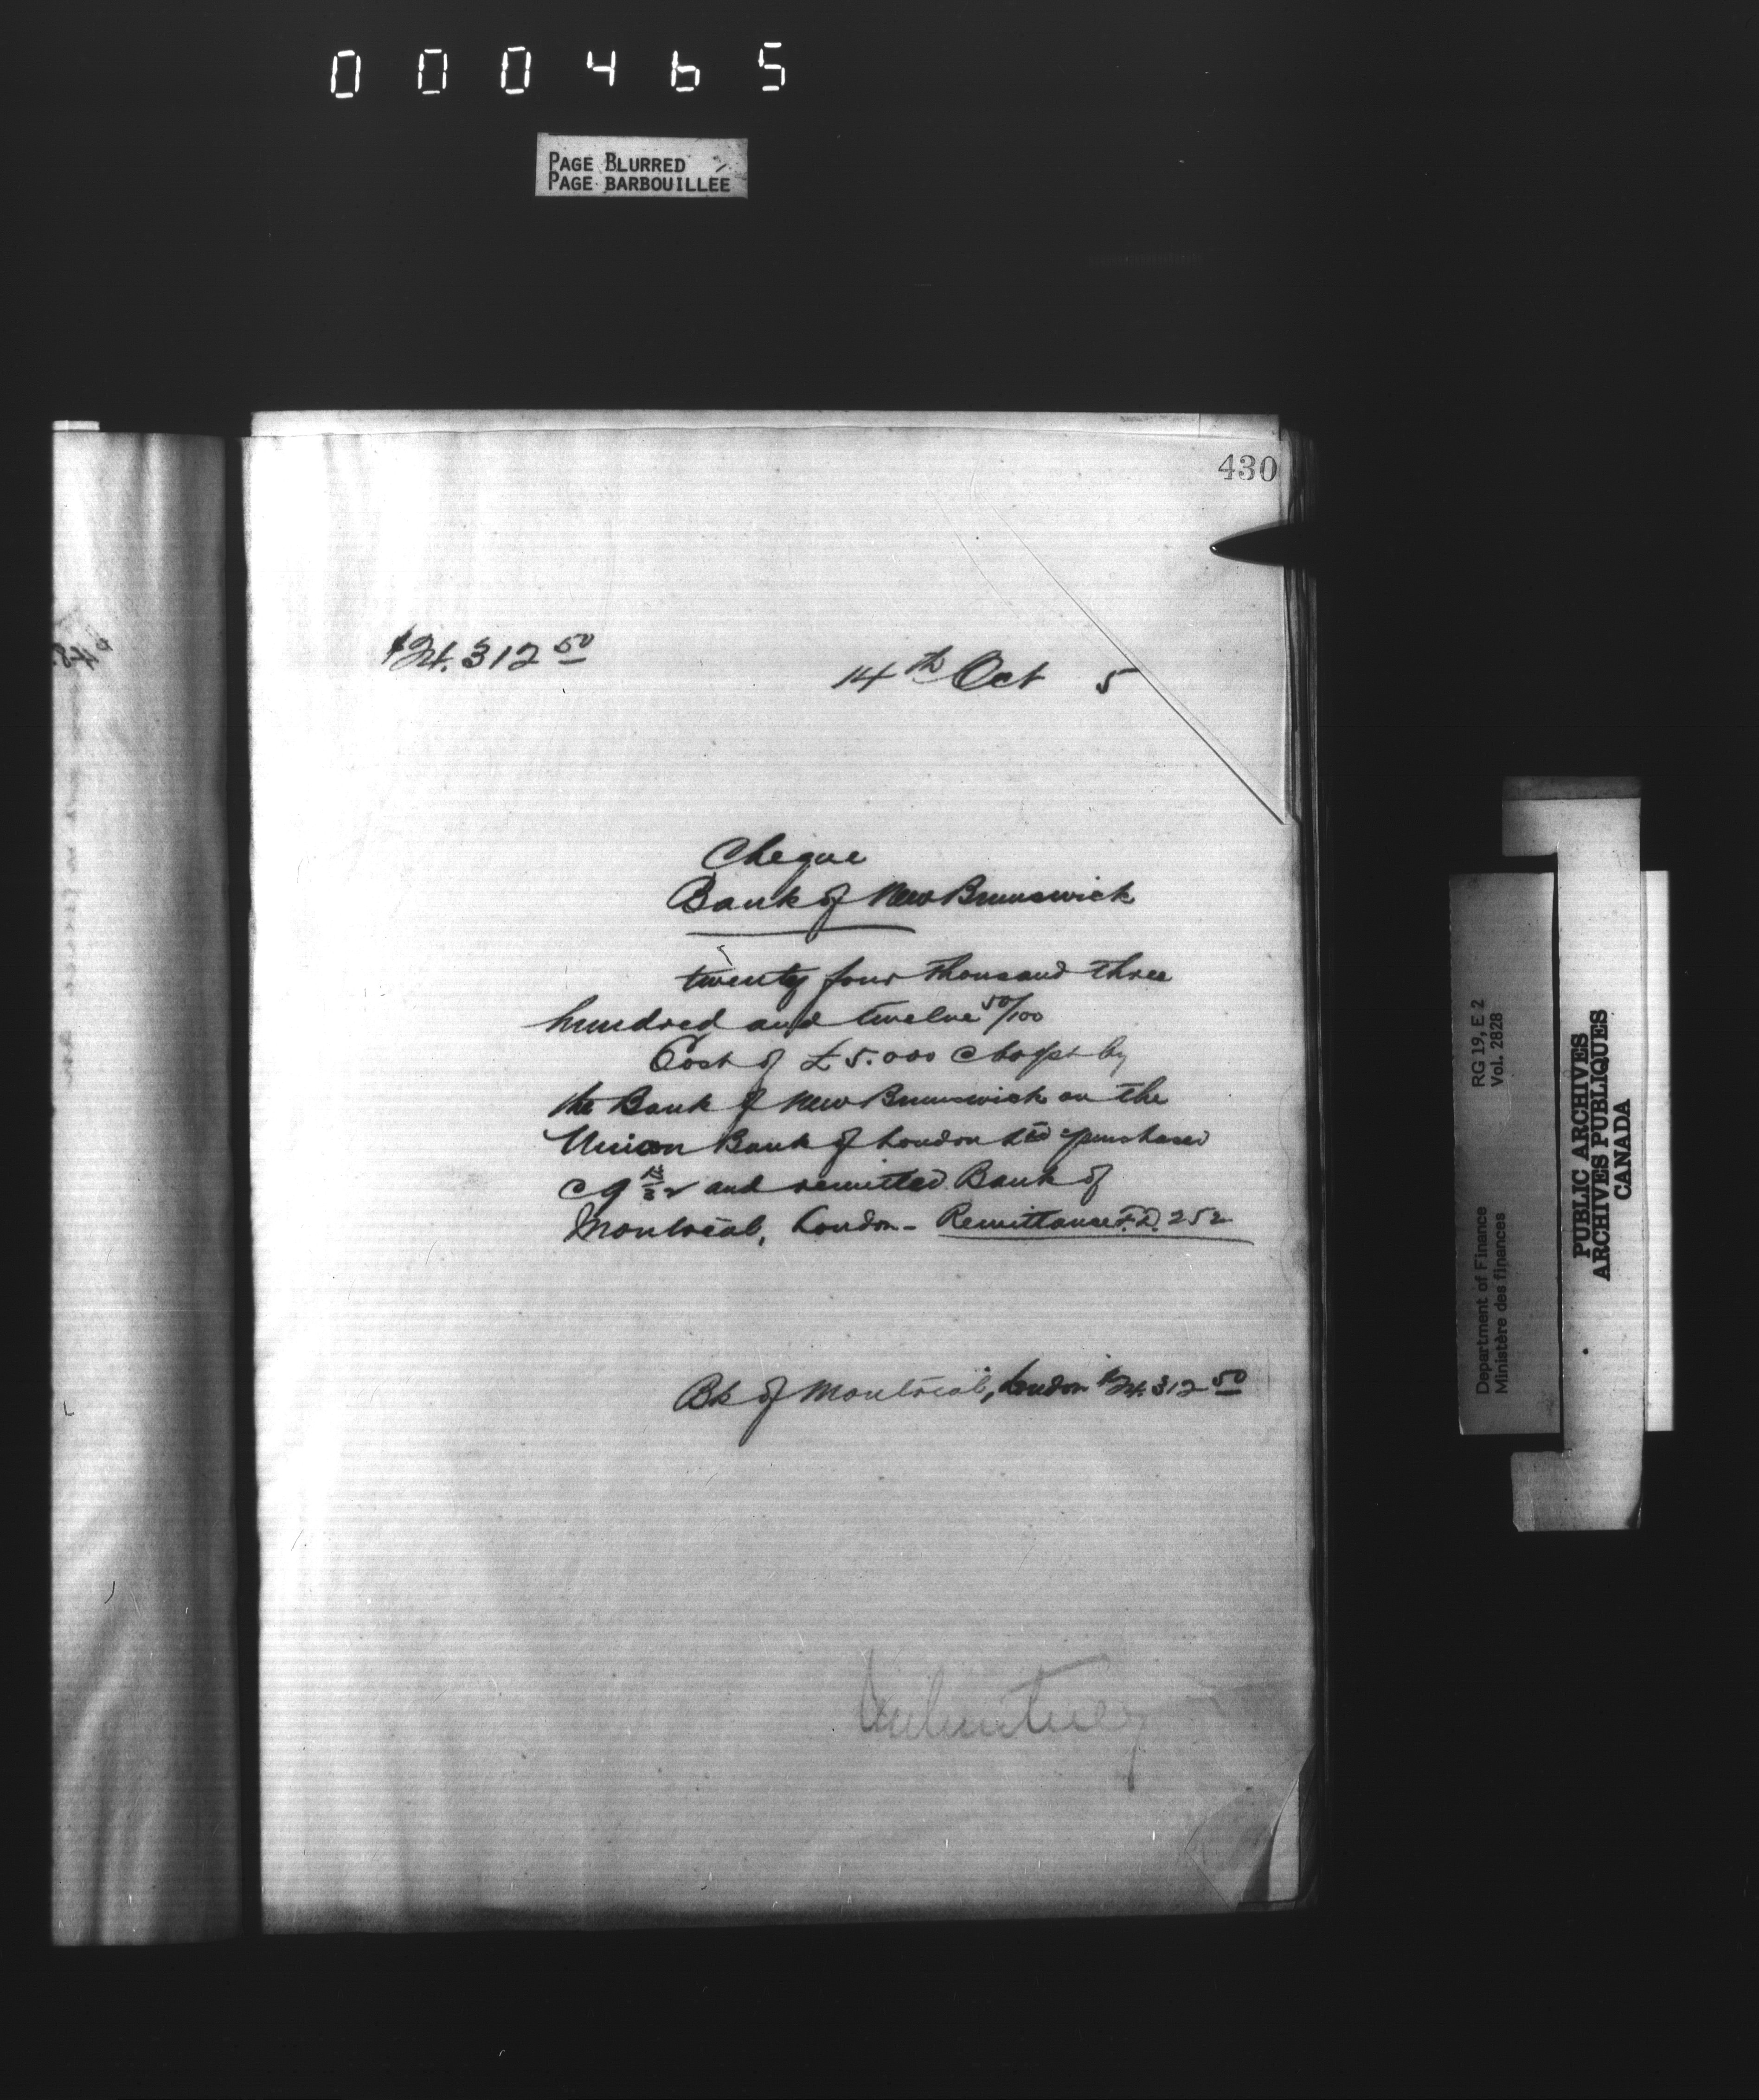 000465
PAGE BLURRED
PAGE BARBOUILLÉE
430
$24.312 50
14th Oct 5
Cheque
Bank of New Brunswick
twenty four thousand three
hundred and twelve 50/100
Cost of £5.000 by
the Bank of New Brunswick on the
Union Bank of London Ltd purchased
9 and remitted Bank of
Montreal, London - Remittance F.D. 252
Bk of Montreal, London $24.312 50
RG 19, E 2
Vol. 2828
Department of Finance
Ministère des finances
PUBLIC ARCHIVES
ARCHIVES PUBLIQUES
CANADA